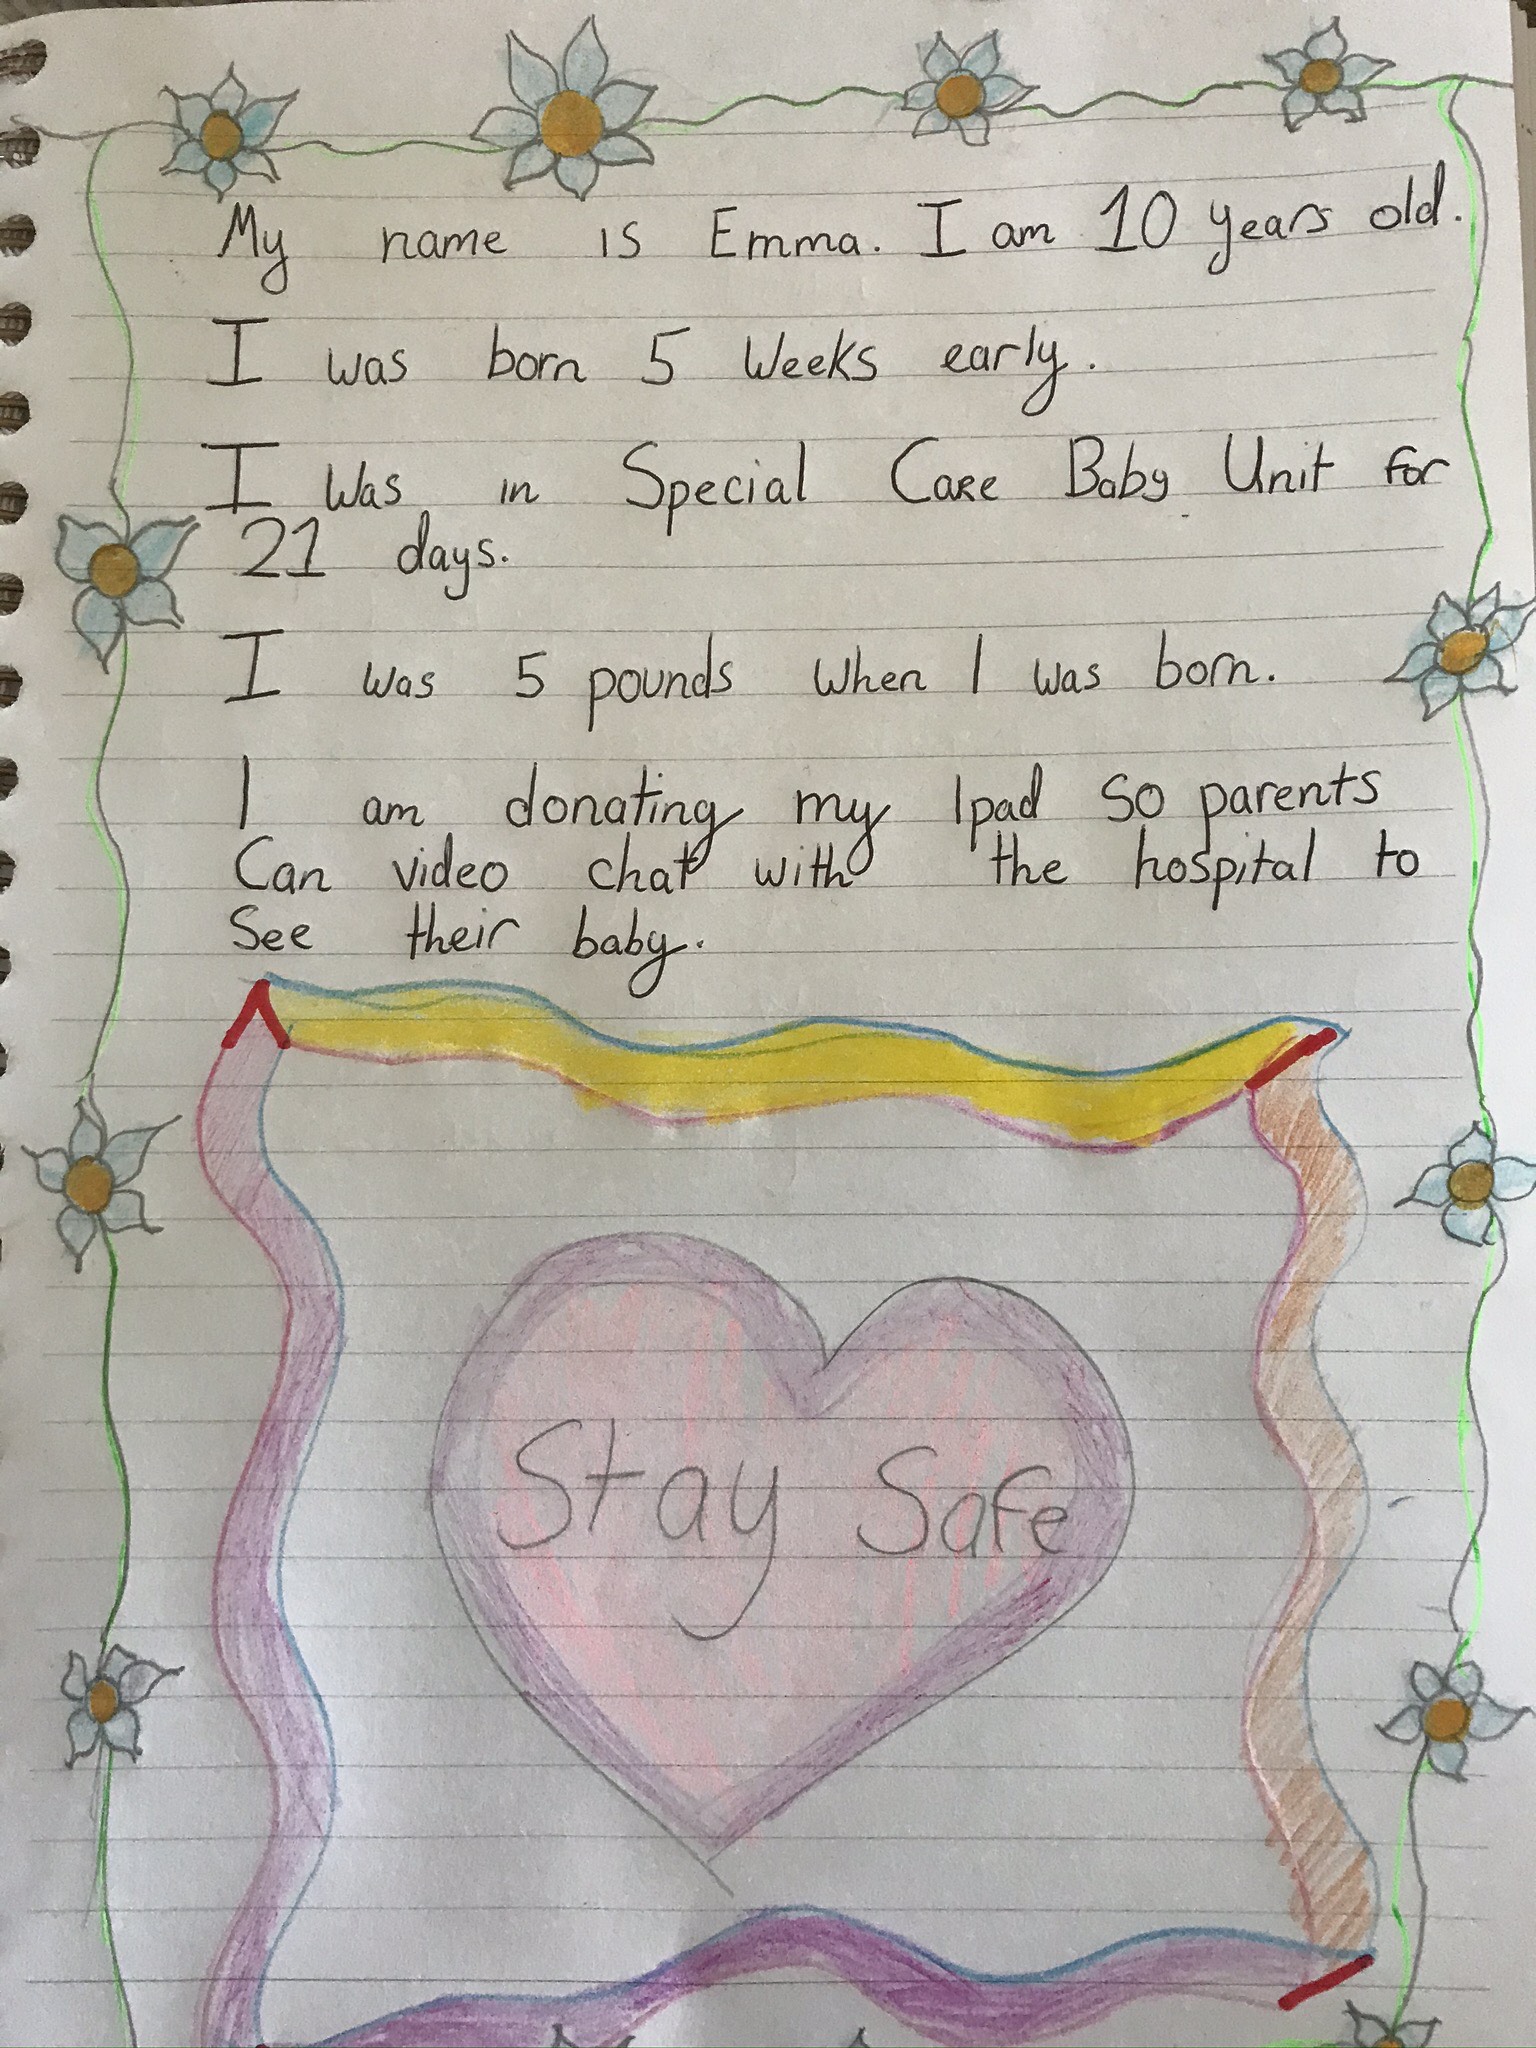 My name is Emma. I am 10 years old.
I was born 5 weeks early.
I was in Special Care Baby Unit for
21 days.
I was 5 pounds when I was born.
I am donating my Ipad so parents
Can video chat with the hospital to
See their baby.
Stay Safe